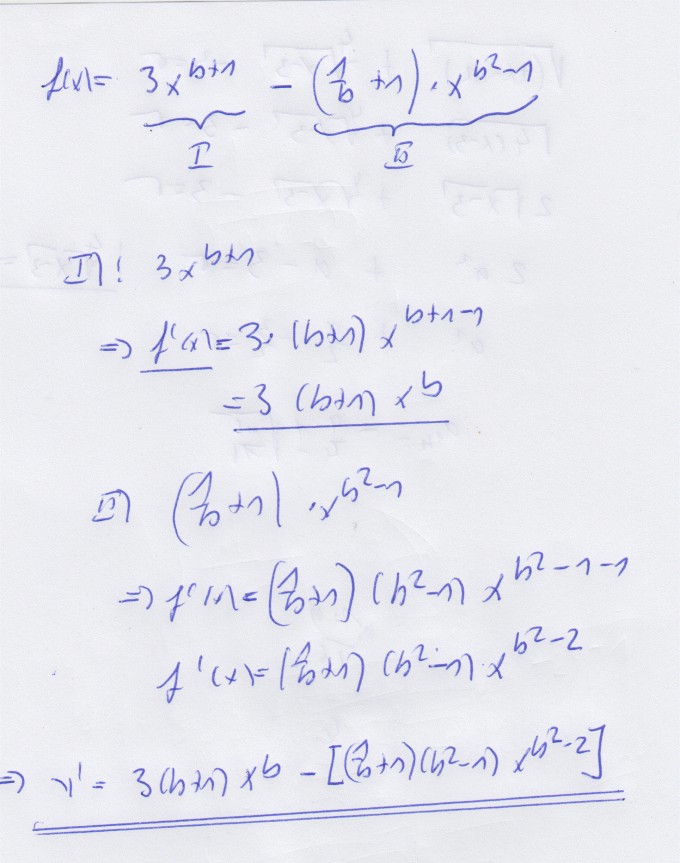 f(x) = 3x^{b+1} - (1/b + 1) · x^{b²-1}
I II
I) ! 3x^{b+1}
⇒ f'(x) = 3 · (b+1) x^{b+1-1}
= 3 (b+1) x^b
II) (1/b + 1) · x^{b²-1}
⇒ f'(x) = (1/b + 1) (b²-1) x^{b²-1-1}
f'(x) = (1/b + 1) (b²-1) · x^{b²-2}
⇒ y' = 3(b+1) x^b - [(1/b + 1)(b²-1) x^{b²-2}]